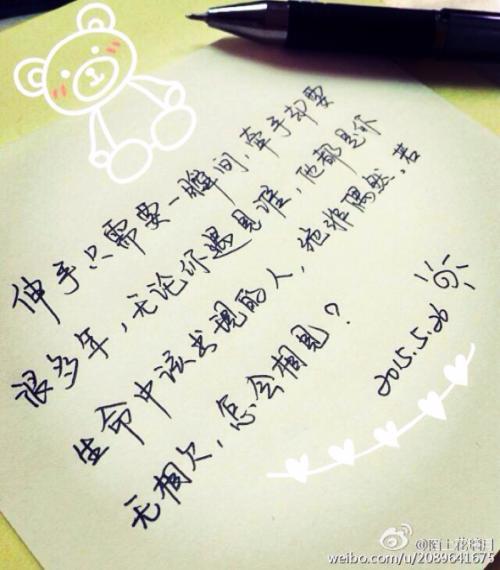 伸手只需要一瞬间，牵手却要
很多年，无论你遇见谁，他都是你
生命中该出现的人，绝非偶然。若
无相欠，怎会相见？
2015.5.26
weibo.com/u/2089641675